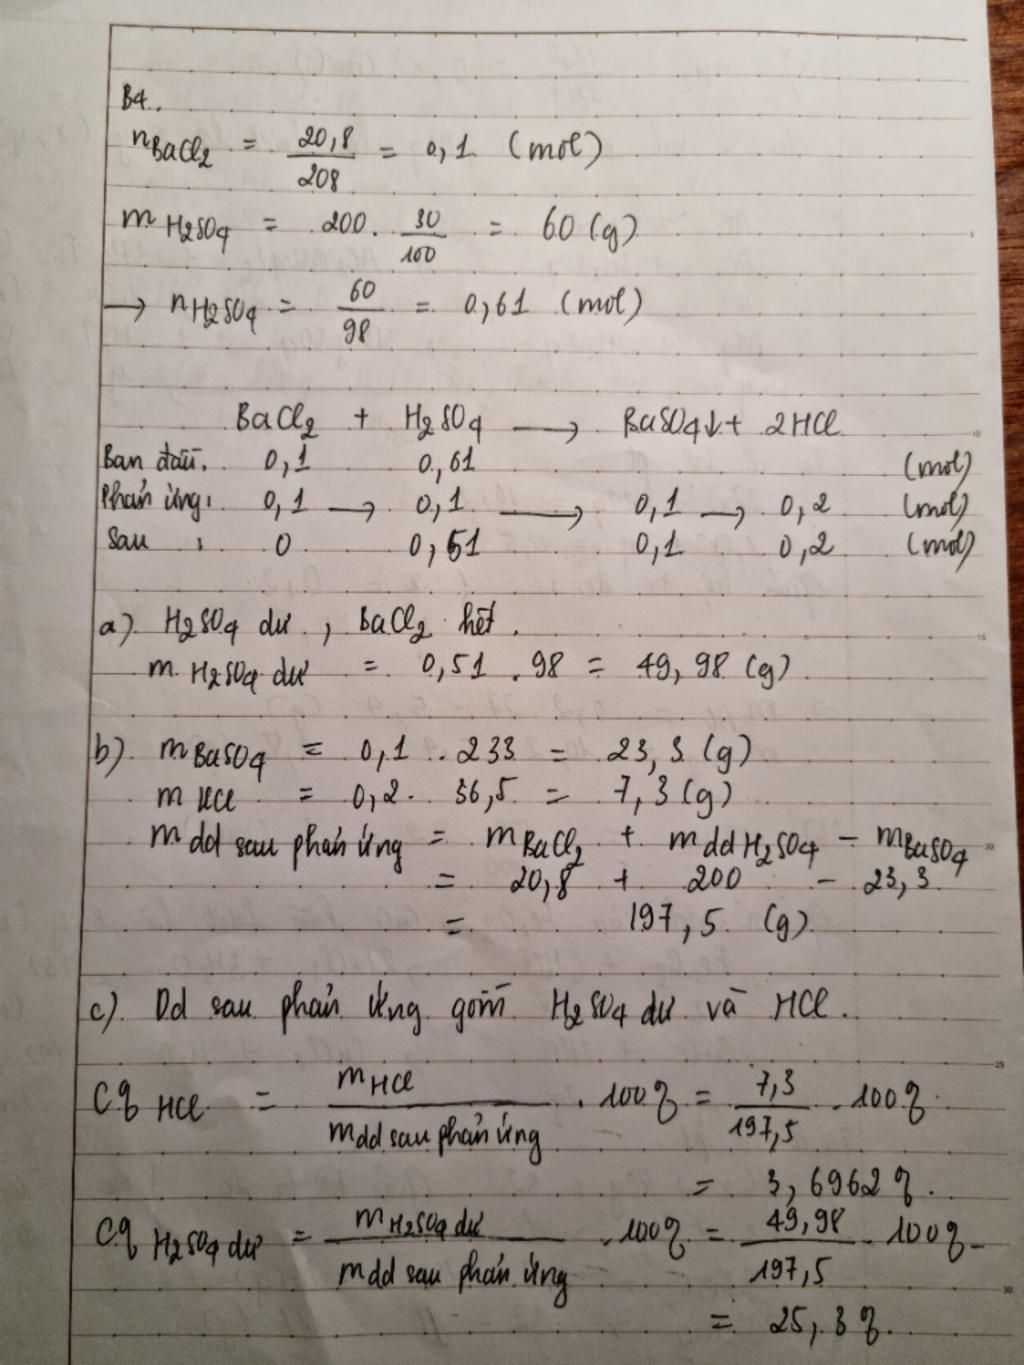 B4.
nBaCl2 = 20,8/208 = 0,1 (mol)
mH2SO4 = 200. 30/100 = 60 (g)
→ nH2SO4 = 60/98 = 0,61 (mol)
BaCl2 + H2SO4 → BaSO4↓ + 2HCl
Ban đầu. 0,1 0,61 (mol)
Phản ứng: 0,1 → 0,1 → 0,1 → 0,2 (mol)
Sau : 0 0,51 0,1 0,2 (mol)
a) H2SO4 dư, BaCl2 hết.
m H2SO4 dư = 0,51 . 98 = 49,98 (g)
b) mBaSO4 = 0,1 . 233 = 23,3 (g)
m HCl = 0,2. 36,5 = 7,3 (g)
mdd sau phản ứng = mBaCl2 + mddH2SO4 - mBaSO4
= 20,8 + 200 - 23,3
= 197,5 (g)
c) Dd sau phản ứng gồm H2SO4 dư và HCl.
C% HCl = mHCl/mdd sau phản ứng . 100% = 7,3/197,5 . 100%
= 3,6962%.
C% H2SO4 dư = mH2SO4 dư/mdd sau phản ứng . 100% = 49,98/197,5 . 100%
= 25,3%.